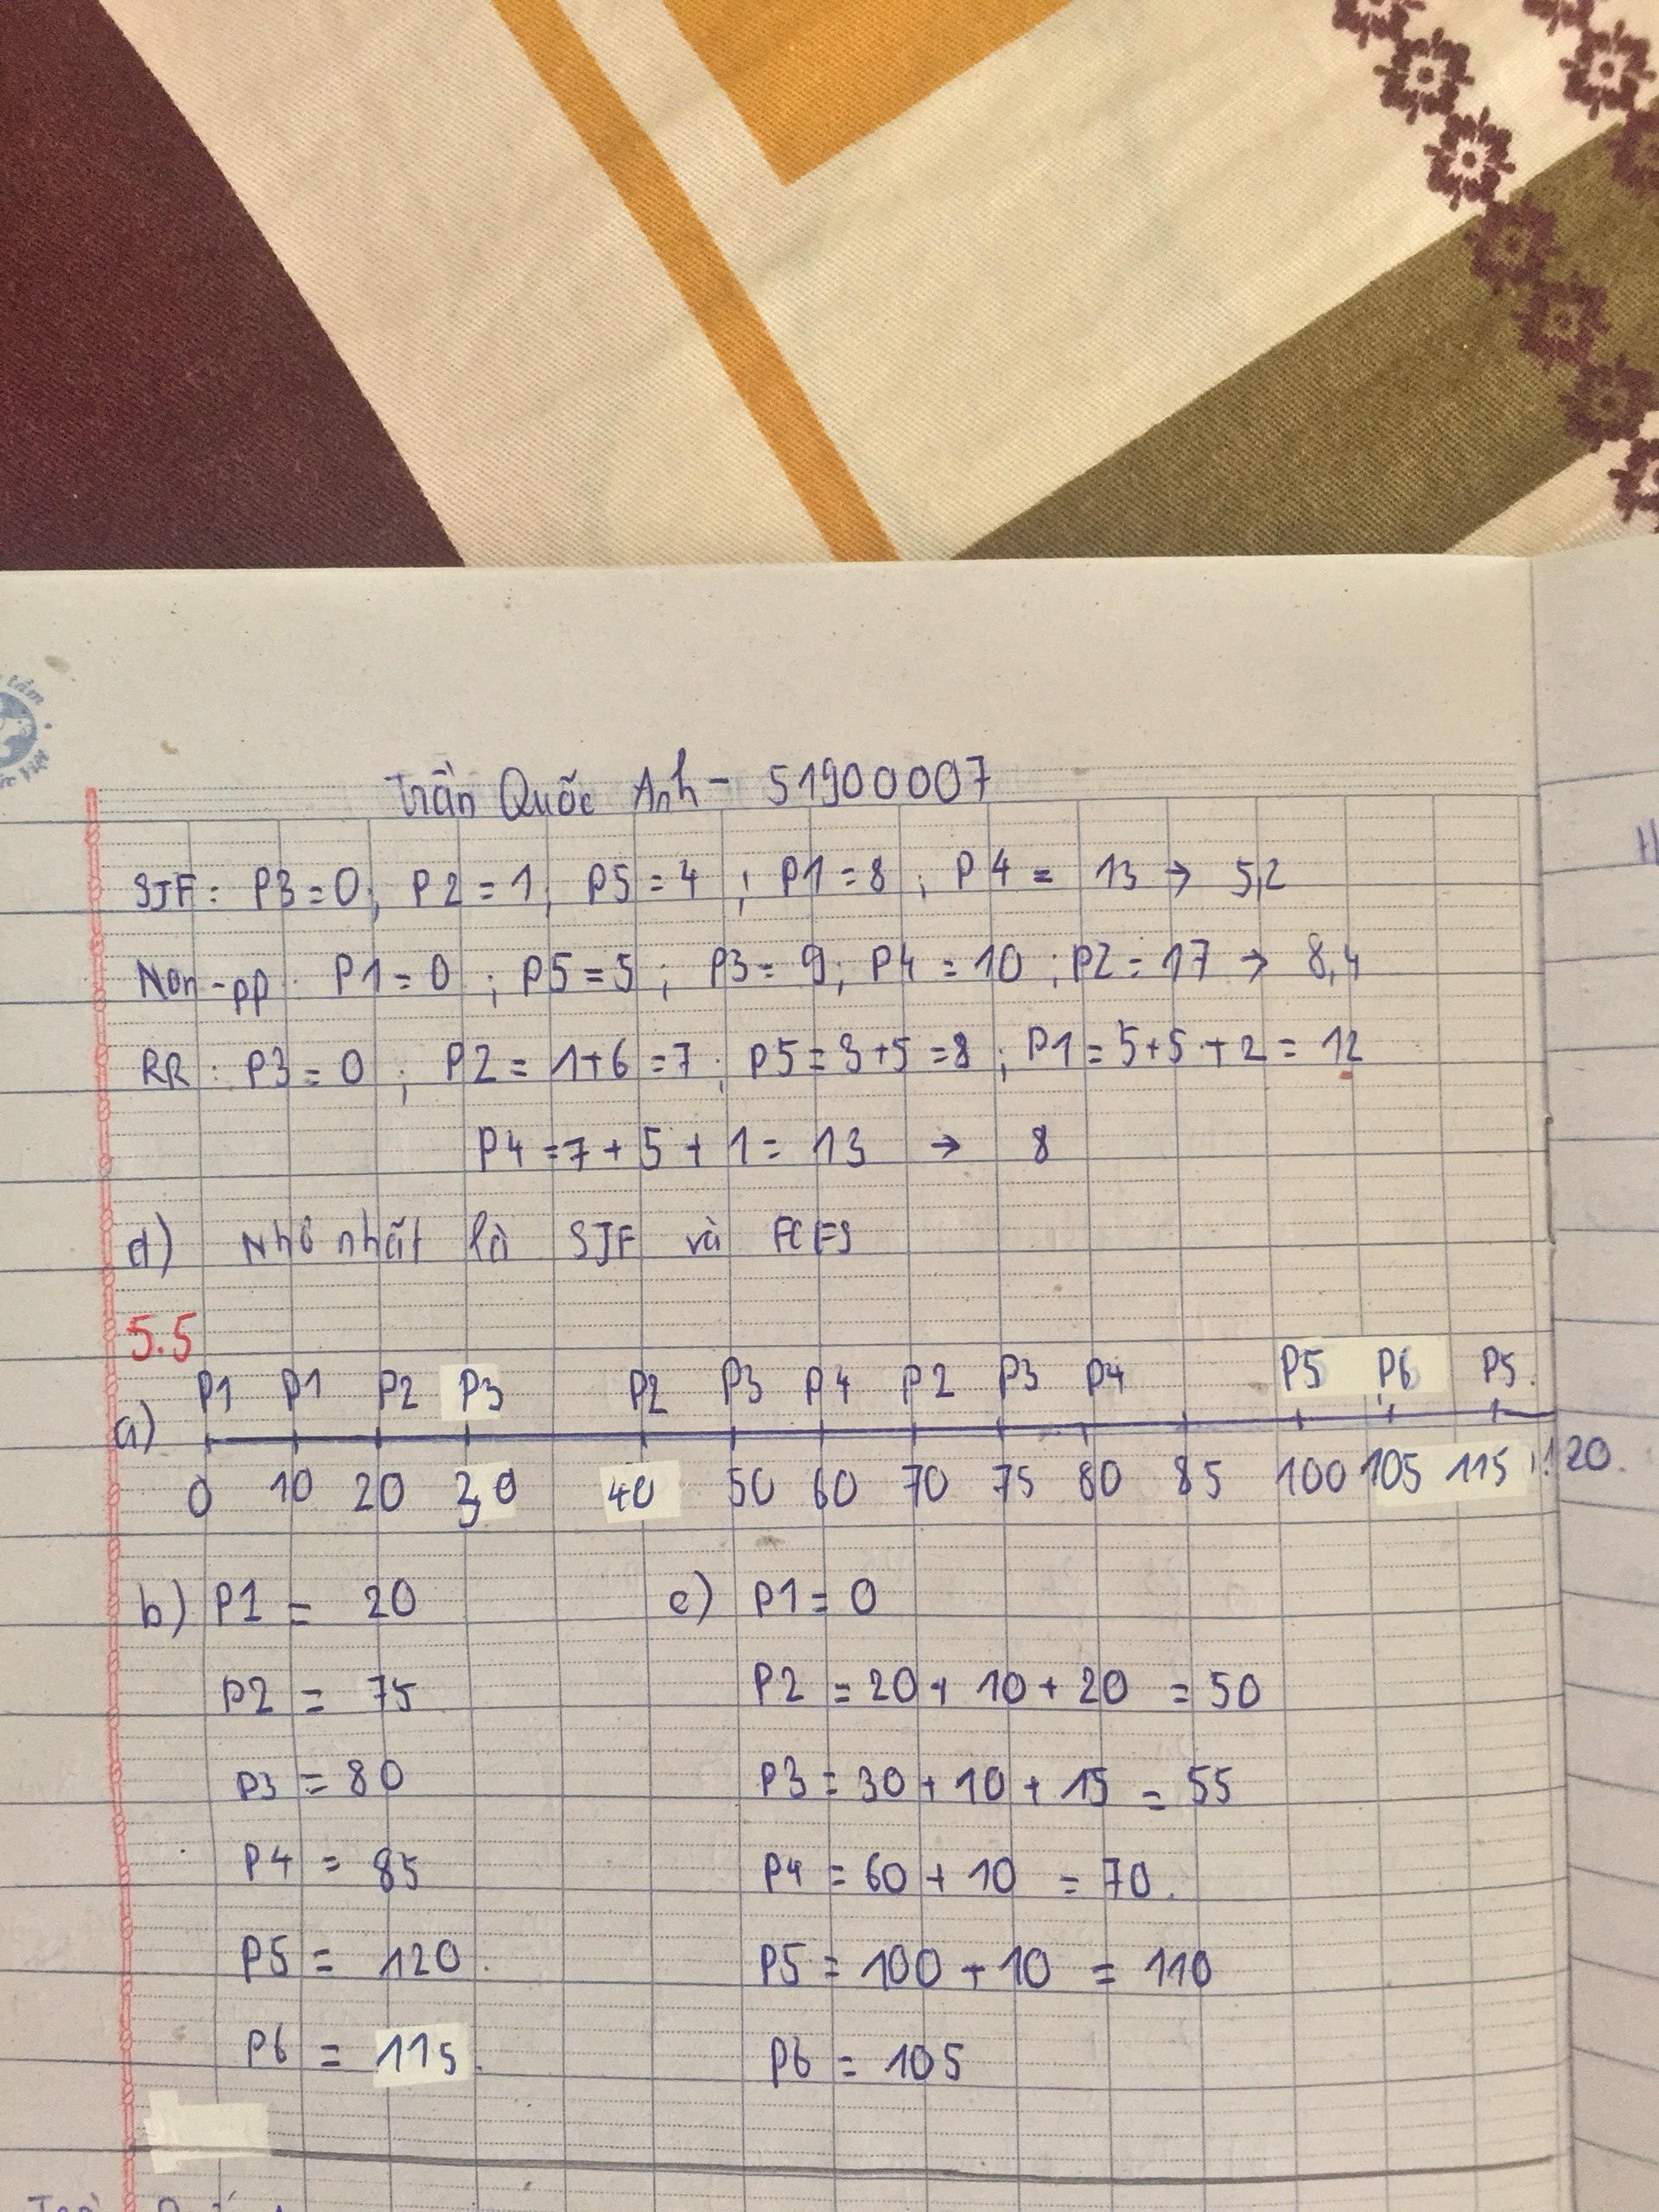 Trần Quốc Anh - 51900007
SJF: P3=0; P2=1; P5=4; P1=8; P4= 13 → 5,2
Non-pp: P1=0; P5=5; P3=9; P4=10; P2=17 → 8,4
RR: P3=0; P2=1+6=7; P5=3+5=8; P1=5+5+2=12
P4=7+5+1=13 → 8
d) Nhỏ nhất là SJF và FCFS
5.5
a) P1 P1 P2 P3 P2 P3 P4 P2 P3 P4 P5 P6 P5.
0 10 20 30 40 50 60 70 75 80 85 100 105 115 120.
b) P1 = 20 c) P1 = 0
P2 = 75 P2 = 20 + 10 + 20 = 50
P3 = 80 P3 = 30 + 10 + 15 = 55
P4 = 85 P4 = 60 + 10 = 70.
P5 = 120. P5 = 100 + 10 = 110
P6 = 115. P6 = 105